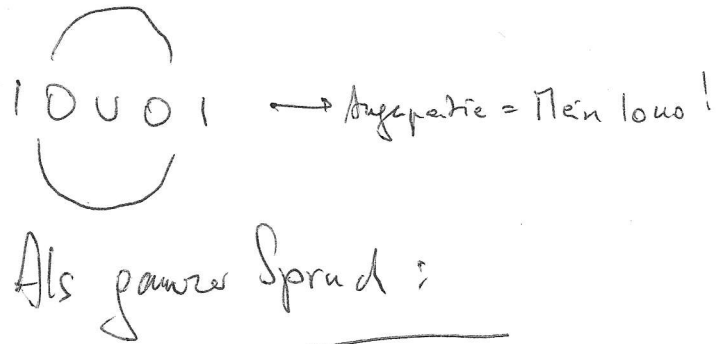 I O U O I → Augenpartie = Mein Logo!
Als ganzer Spruch: